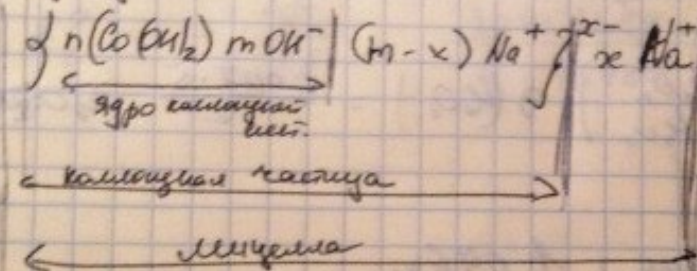 { n(Co(OH)₂) m OH⁻ | (m - x) Na⁺ }ˣ⁻ x Na⁺
ядро коллоидной
част.
коллоидная частица
мицелла